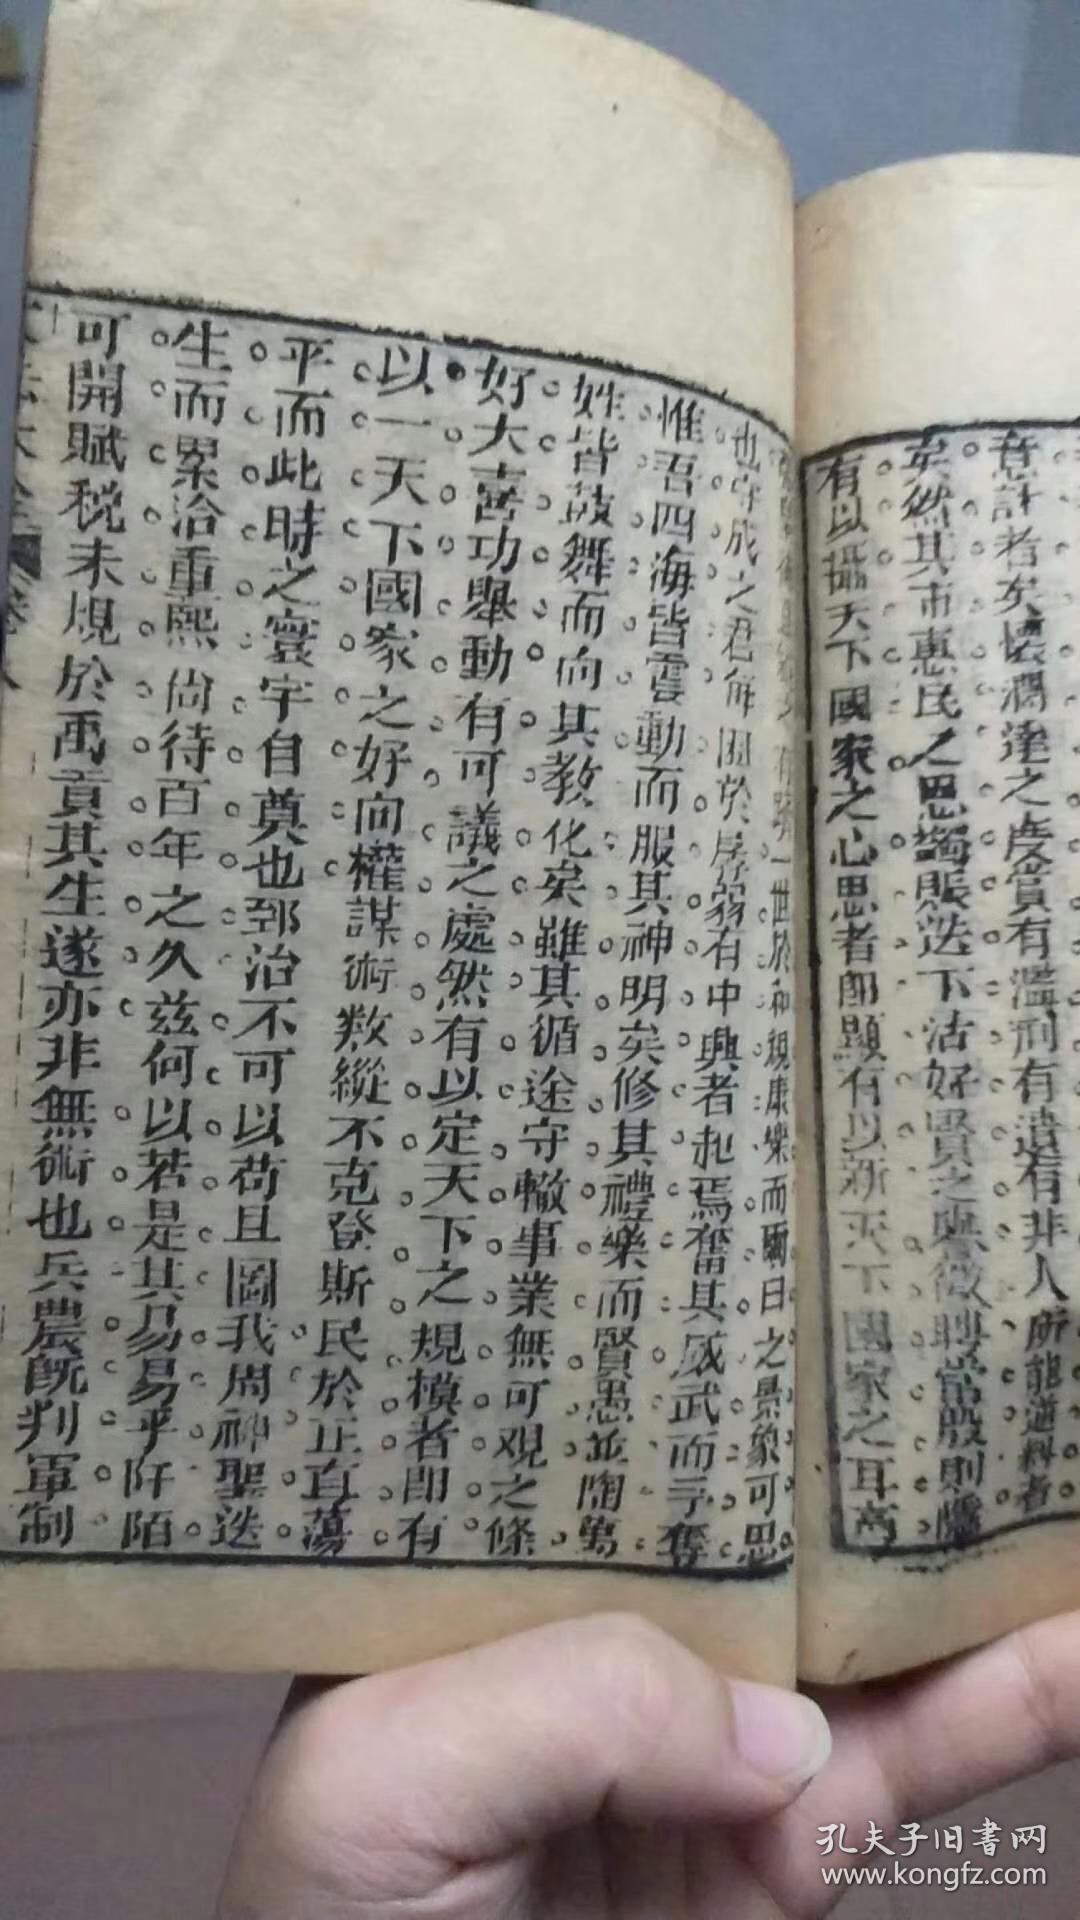 意計者矣懷濶達之度賞有濫刑有遺有非人所能逆料者
矣然其市惠民之恩蠲賬迭下沽好賢之典徵聘常殷則隱
有以攝天下國家之心思者卽顯有以新天下國家之耳
一世於和親康樂而爾日之景象可思
也守成之君解圍於孱弱有中興者起焉奮其威武而予奪
惟吾四海皆震動而服其神明矣修其禮樂而賢愚並陶萬
姓皆鼓舞而向其教化矣雖其循途守轍事業無可觀之條
好大喜功舉動有可議之處然有以定天下之規模者卽有
以一天下國家之好向權謀術數縱不克登斯民於正直蕩
平而此時之寰宇自奠也郅治不可以苟且圖我周神聖迭
生而累洽重熙尚待百年之久茲何以若是其易易乎阡陌
可開賦稅未規於禹貢其生遂亦非無術也兵農旣判軍制
孔夫子旧書网
www.kongfz.com